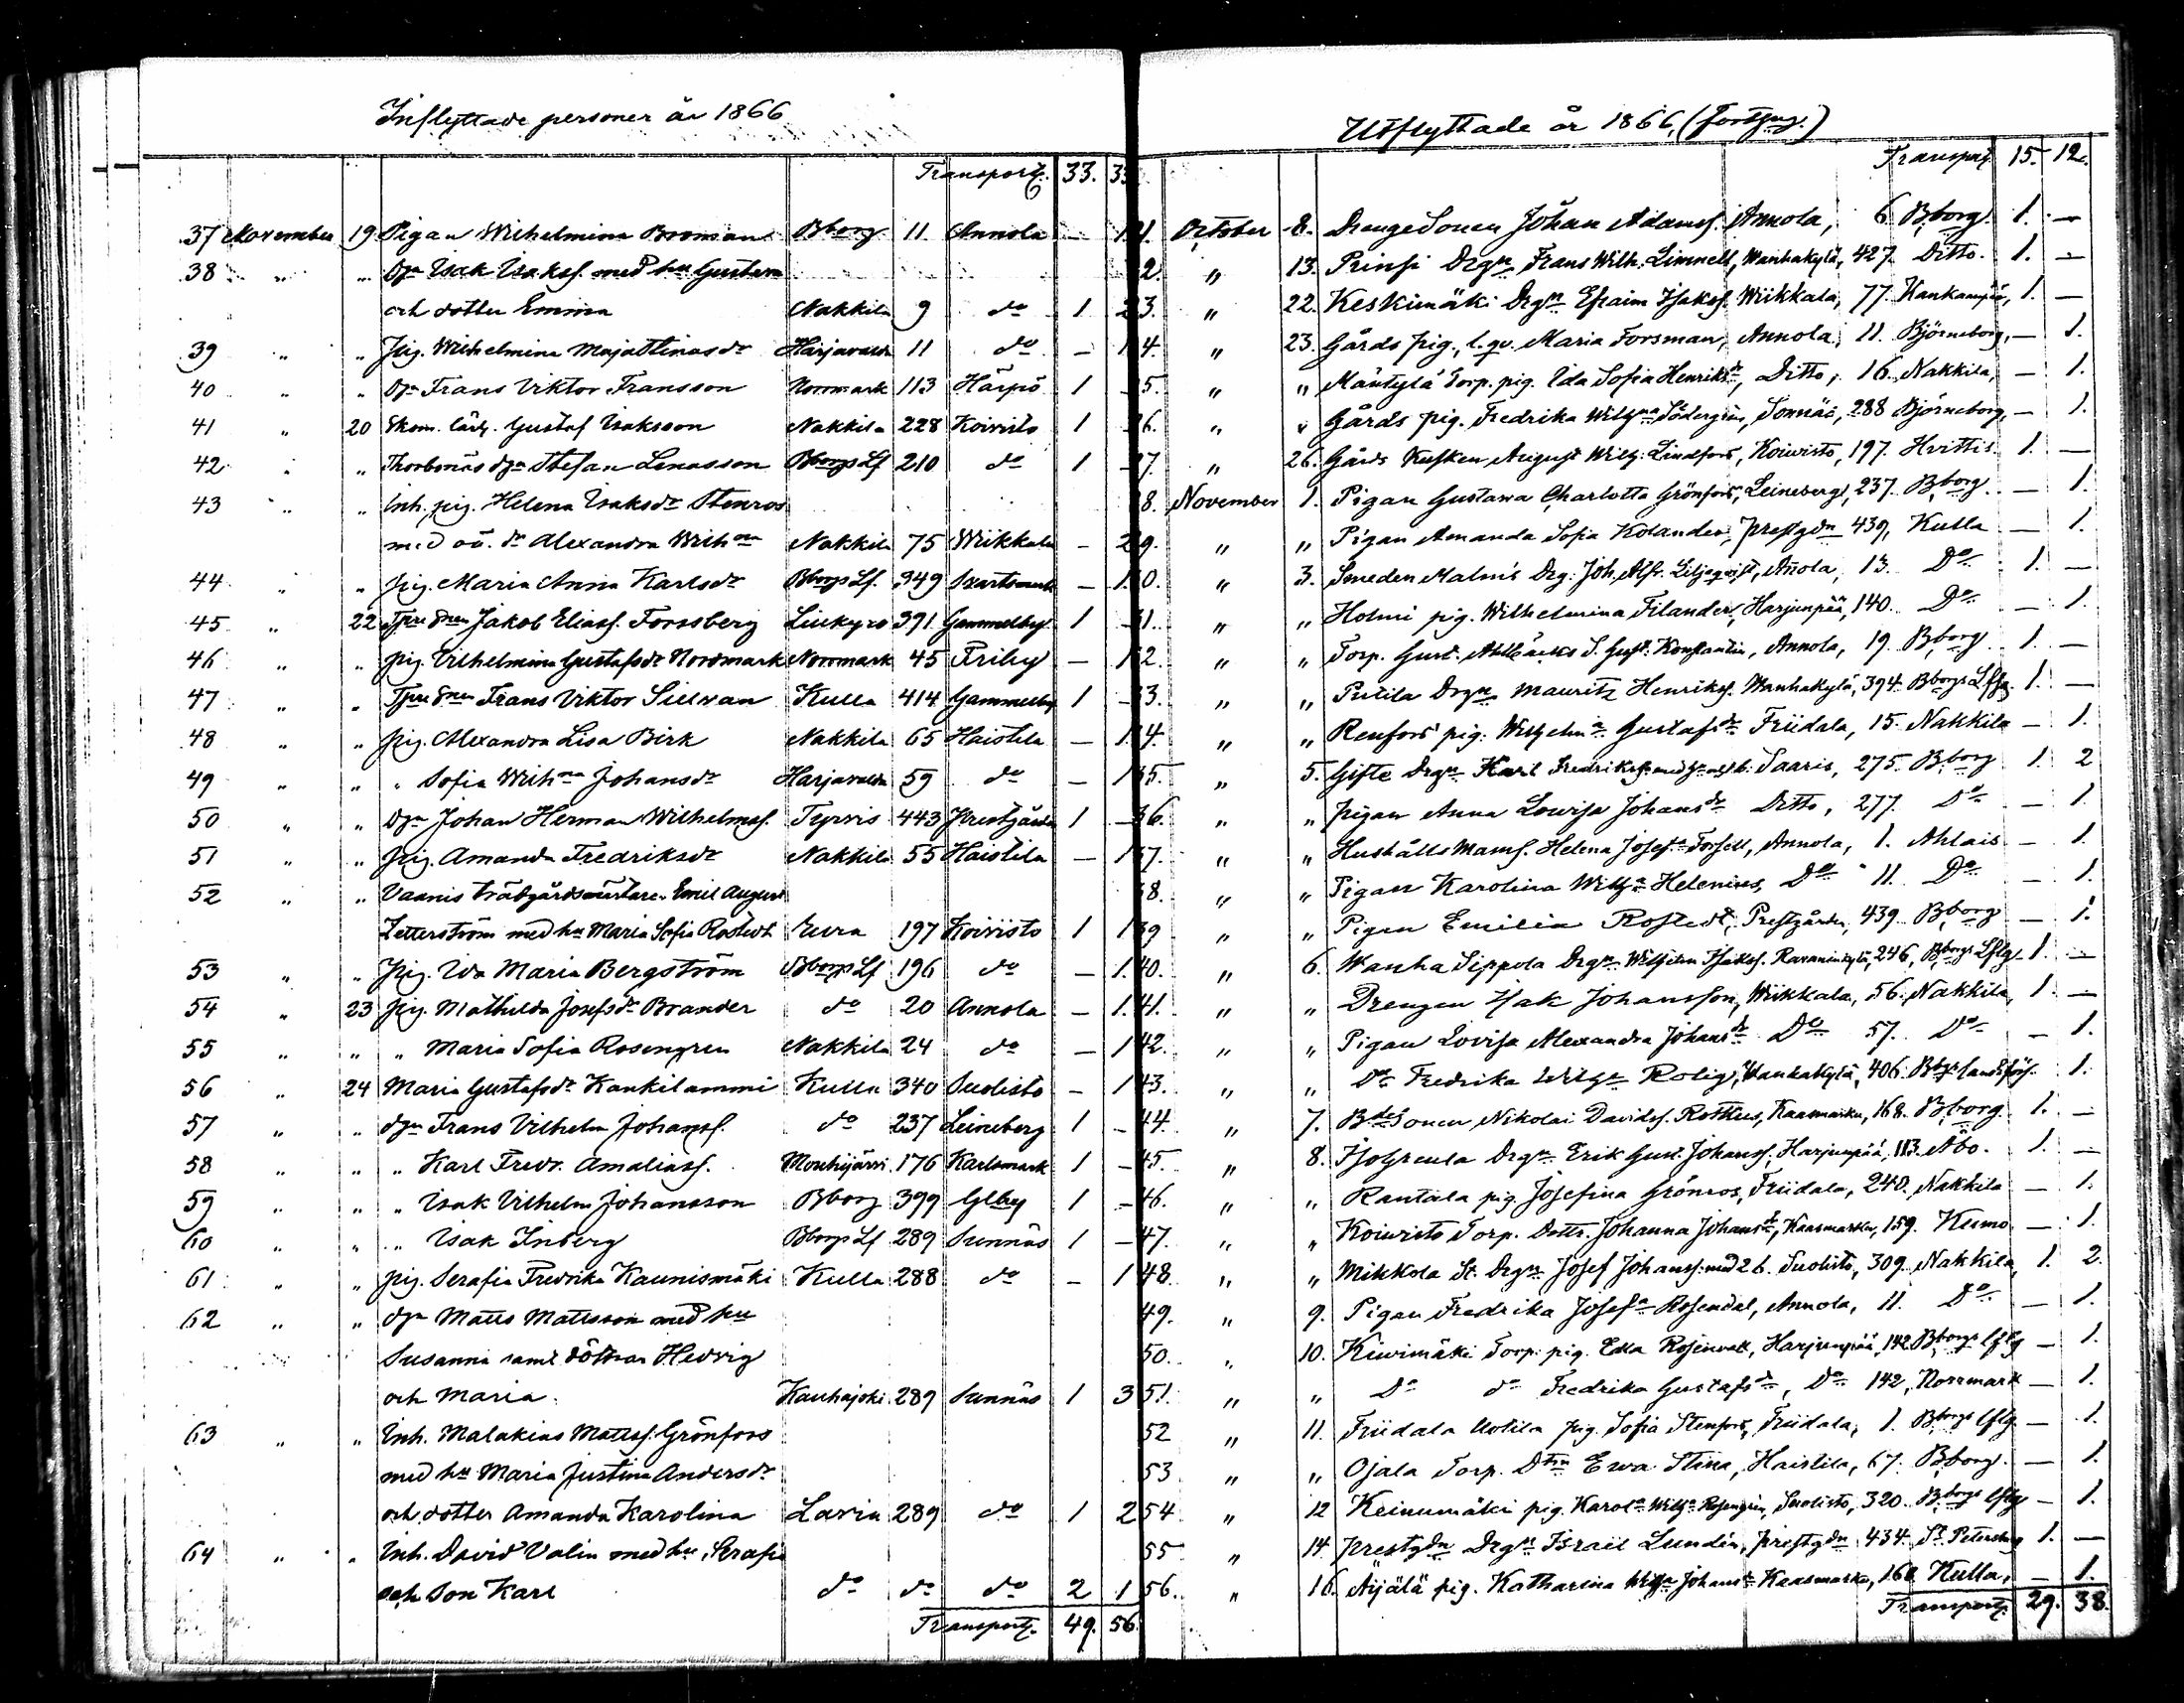 Inflyttade personer år 1866
Transport. 33. 33
37 November 19 Pigan Wilhelmina Broman Bborg 11 Annola — 1
38 " " Dgn Isak Isakss. med hu Gustava
och dotter Emma Nakkila 9 do 1 2
39 " " Pig. Wilhelmina Maja Stinas dr Harjavalda 11 do — 1
40 " " Dgn Frans Viktor Fransson Norrmark 113 Härpö 1 —
41 " 20 Skom. lärl. Gustaf Isaksson Nakkila 228 Koivisto 1 —
42 " " Thorbonäs dgn Stefan Lenasson Bborgs Lf 210 do 1 —
43 " " Inh. pig. Helena Isaksdr Stenros
med oä. dr Alexandra Wilhna Nakkila 75 Wiikkala — 2
44 " " Pig. Maria Anna Karlsdr Bborgs Lf. 349 Svartsmark — 1
45 " 22 Tpresnen Jakob Eliass. Forssberg Littkyro 391 Gammelby 1 —
46 " " Pig. Vilhelmina Gustafsdr Nordmark Norrmark 45 Friby — 1
47 " " Tpresnen Frans Viktor Sillvan Kulla 414 Gammelby 1 —
48 " " Pig. Alexandra Lisa Birk Nakkila 65 Haistila — 1
49 " " " Sofia Wilhna Johansdr Harjavalda 59 do — 1
50 " " Dgn Johan Herman Wilhelmss. Tyrvis 443 Prestgården 1 —
51 " " Pig. Amanda Fredriksdr Nakkila 55 Haistila — 1
52 " " Vaanis trädgårdsmästare Emil August
Zetterström med hu Maria Sofia Rostedt Eura 197 Koivisto 1 1
53 " " Pig. Ida Maria Bergström Bborgs Lf 196 do — 1.
54 " 23 Pig. Mathilda Josefsdr Brander do 20 Annola — 1.
55 " " " Maria Sofia Rosengren Nakkila 24 do — 1
56 " 24 Maria Gustafsdr Kankilammi Kulla 340 Suolisto — 1
57 " " dgn Frans Vilhelm Johanss. do 237 Leineberg 1 —
58 " " " Karl Fredr. Amaliass. Mouhijärvi 176 Karlsmark 1 —
59 " " " Isak Vilhelm Johansson Bborg 399 Glby 1 —
60 " " " Isak Inberg Bborgs Lf 289 Sunnäs 1 —
61 " " pig. Serafia Fredrika Kaunismäki Kulla 288 do — 1
62 " " dgn Matts Mattsson med hu
Susanna samt döttrar Hedvig
och Maria Kauhajoki 289 Sunnäs 1 3
63 " " Inh. Malakias Mattss. Grönfors
med hu Maria Justina Andersdr
och dotter Amanda Karolina Lavia 289 do 1 2
64 " " Inh. David Valin med hu Serafia
och Son Karl do do do 2 1
Transport. 49. 56
Utflyttade år 1866, (fortsng.)
Transport 15. 12.
21. October 8. DrengeSonen Johan Adamss. Annola, 6 Bborg. 1. —
2. " 13. Prinsi Drgn Frans Wilh. Limnell, Wanhakylä, 427. Ditto. 1. —
23. " 22. Keskimäki Drgn Efraim Isakss. Wiikkala, 77. Kankaanpää, 1. —
4. " 23. Gårds pig., l. qv. Maria Forsman, Annola, 11. Björneborg, — 1.
25. " " Mäntylä Torp. pig. Eda Sofia Henriksdr, Ditto, 16. Nakkila, — 1.
26. " " Gårds pig. Fredrika Wilhna Södergren, Sonnäs, 288 Björneborg, — 1.
27. " 26. Gårds Kusken August Wilh. Lindfors, Koiwisto, 197. Hvittis. 1. —
28. November 1. Pigan Gustawa Charlotta Grönfors, Leineberg, 237. Bborg — 1.
29. " " Pigan Amanda Sofia Kolander, prestgdn 439, Kulla — 1.
30. " 3. Smeden Malmis Drg. Joh. Alfr. Liljeqvist, Añola, 13. Do 1. —
31. " " Holmi pig. Wilhelmina Filander, Harjunpää, 140. Do — 1.
32. " " Torp. Gust. Ahlbäcks S. Gust. Konstantin, Annola, 19. Bborg 1. —
33. " " Putila Drgn Mauritz Henrikss. Wanhakylä, 394. Bborgs Lfsg. 1. —
34. " " Renfors pig. Wilhelma Gustafsdr Friidala, 15. Nakkila — 1.
35. " 5. Gifte Drgn Karl Fredrikss. med hu och b. Saaris, 275. Bborg 1. 2
36. " " pigan Anna Lowisa Johansdr Ditto, 277. Do — 1.
37. " " Hushålls Mams. Helena Josefa Forsell, Annola, 1. Ahlais — 1.
38. " " Pigan Karolina Wilha Helenius, Do 11. Do — 1.
39 " " Pigan Emilia Rostedt, Prestgården, 439. Bborg — 1.
40. " 6. Wanha Sippola Drgn Wilhelm Isakss. Ravaninkylä, 246, Bborgs Lfslg 1. —
41. " " Drengen Isak Johansson, Wiikkala, 56. Nakkila, 1. —
42. " " Pigan Lovisa Alexandra Johansdr Do 57. Do — 1.
43. " " Do Fredrika Wilha Rolig, Wanhakylä, 406. Bbgs landsförs. 1.
44. " 7. BdeSonen Nikolai Davidss. Rottus, Kaasmarku, 168. Bborg. 1. —
45. " 8. Isogreula Drgn Erik Gust. Johanss. Harjunpää, 113. Åbo. 1. —
46. " " Rantala pig. Josefina Grönroos, Friidala, 240. Nakkila — 1.
47. " " Koiwisto Torp. Dottr. Johanna Johansdr, Kaasmarku, 159. Kumo — 1.
48 " " Mikkola St. Drgn Josef Johanss. med 2 b. Suolisto, 309. Nakkila, 1. 2.
49. " 9. Pigan Fredrika Josefa Rosendal, Annola, 11. Do — 1.
50. " 10. Kiwimäki Torp. pig. Edla Rosenvall, Harjunpää, 142 Bborgs lfslg — 1.
51. " " Do do Fredrika Gustafsdr, Do 142, Norrmark — 1.
52 " 11. Friidala Uotila pig. Sofia Stenfors, Friidala, 1. Bborgs lflg — 1.
53 " " Ojala Torp. Dtrn Ewa Stina, Haistila, 67. Bborg. — 1.
54 " 12 Keinumäki pig. Karola Wilha Rosengren, Suolisto, 320. Bborgs lflg — 1.
55 " 14 prestgdn Drgn Israel Lundén, prestgdn 434. St Petersburg 1. —
56. " 16. Äijälä pig. Katharina Wilha Johansdr Kaasmarku, 168 Kulla, — 1.
Transport. 29. 38.